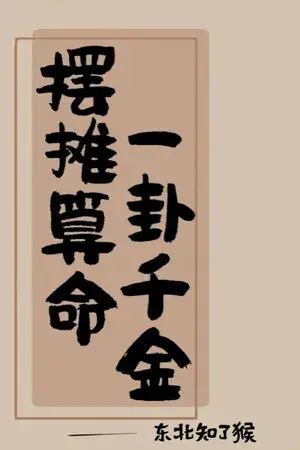 摆摊算命
一卦千金
东北知了猴